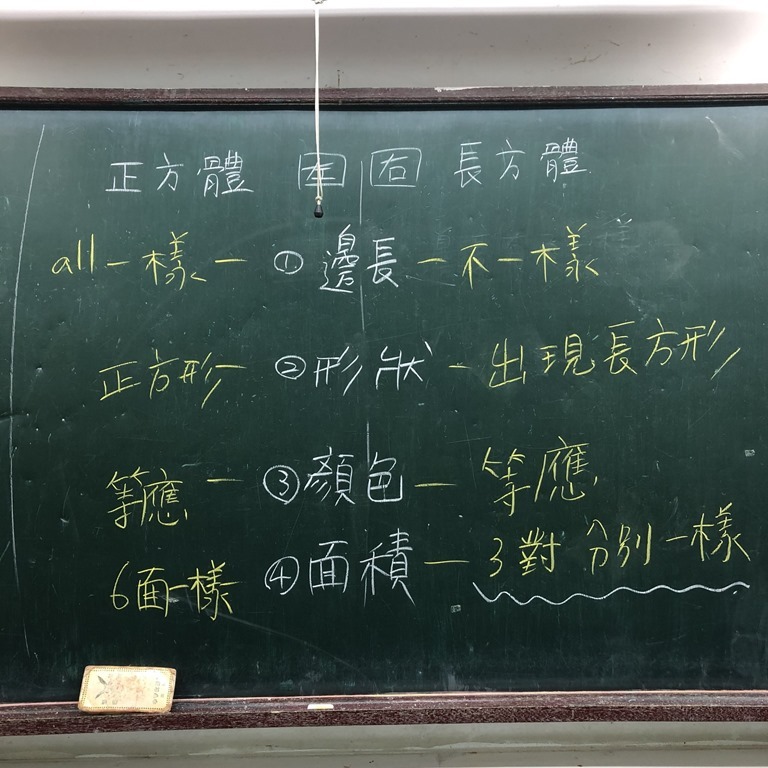 正方體 左 右 長方體
all一樣 — ①邊長 — 不一樣
正方形 — ②形狀 — 出現長方形
等應 — ③顏色 — 等應
6面一樣 ④面積 — 3對分別一樣